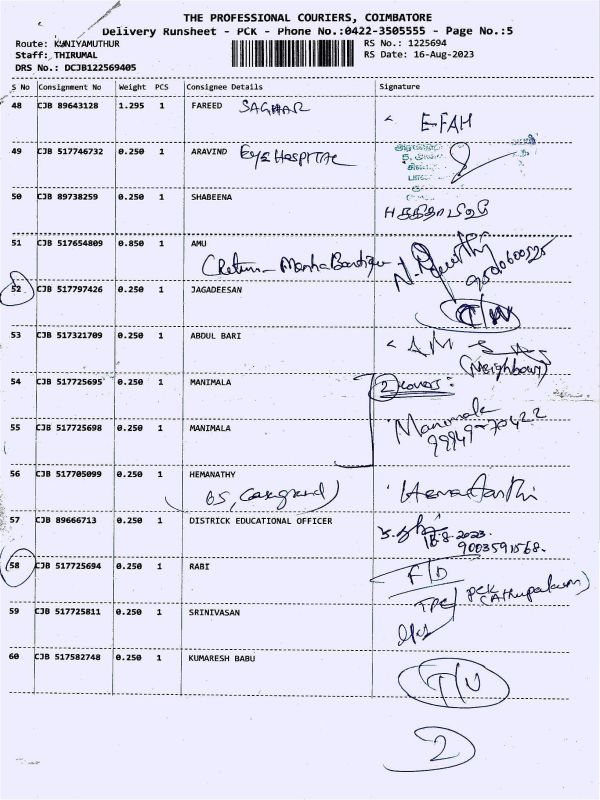 THE PROFESSIONAL COURIERS, COIMBATORE
Delivery Runsheet - PCK - Phone No.:0422-3505555 - Page No.:5
Route: KUNIYAMUTHUR
RS No.: 1225694
Staff: THIRUMAL
RS Date: 16-Aug-2023
DRS No.: DCJB122569405
S No Consignment No Weight PCS Consignee Details Signature
48 CJB 89643128 1.295 1 FAREED SAGHAR
E-FAH
49 CJB 517746732 0.250 1 ARAVIND Eye Hospital
50 CJB 89738259 0.250 1 SHABEENA
51 CJB 517654809 0.850 1 AMU
52 CJB 517797426 0.250 1 JAGADEESAN
53 CJB 517321709 0.250 1 ABDUL BARI
(Neighbour)
54 CJB 517725695 0.250 1 MANIMALA
2 covers:
55 CJB 517725698 0.250 1 MANIMALA
Manimala
56 CJB 517705099 0.250 1 HEMANATHY
57 CJB 89666713 0.250 1 DISTRICK EDUCATIONAL OFFICER
16.8.2023.
9003591568.
58 CJB 517725694 0.250 1 RABI
F/D
59 CJB 517725811 0.250 1 SRINIVASAN
60 CJB 517582748 0.250 1 KUMARESH BABU
2